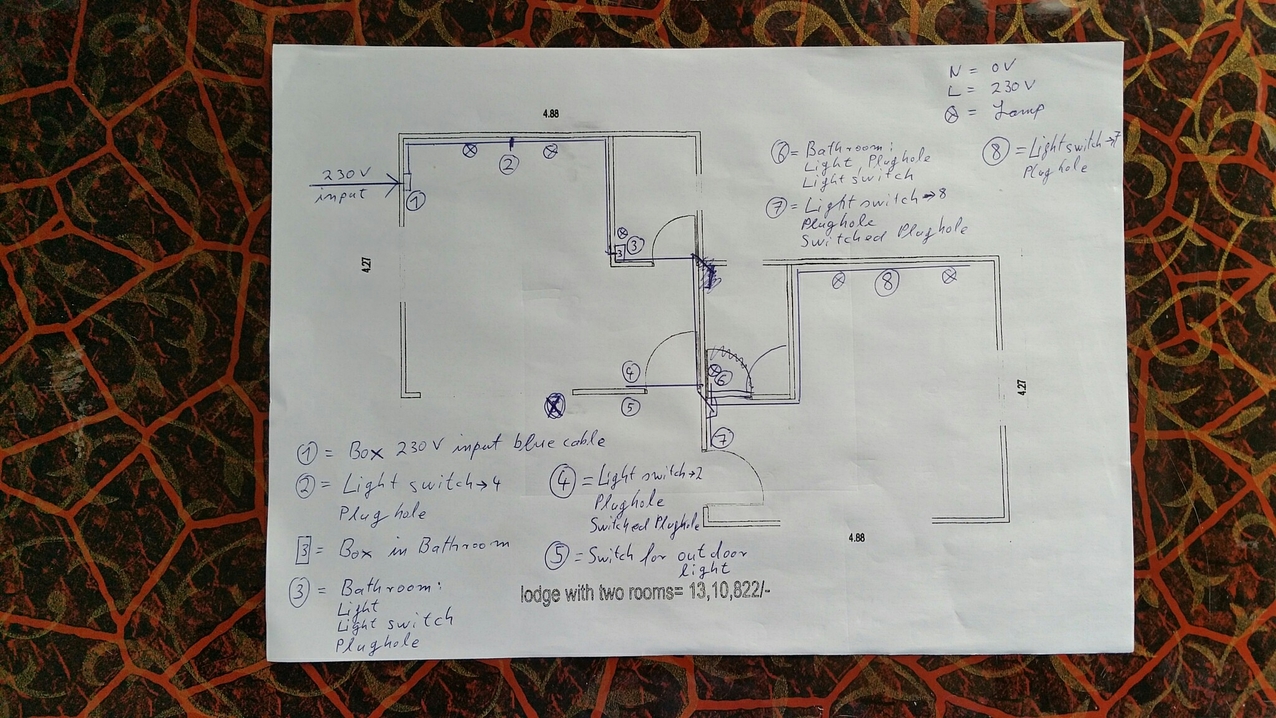 N = 0V
L = 230V
⊗ = Lamp
4.88
⑥ = Bathroom:
Light, Plughole
Light switch
⑧ = Lightswitch→7
Plughole
⑦ = Light switch→8
Plughole
Switched Plughole
230V
input
①
②
③
3
4.27
⑧
④
⑤
⑥
⑦
4.27
① = Box 230V input blue cable
② = Light switch→4
Plughole
④ = Light switch→2
Plughole
Switched Plughole
4.88
3 = Box in Bathroom
⑤ = Switch for outdoor
light
③ = Bathroom:
Light
Light switch
Plughole
lodge with two rooms= 13,10,822/-